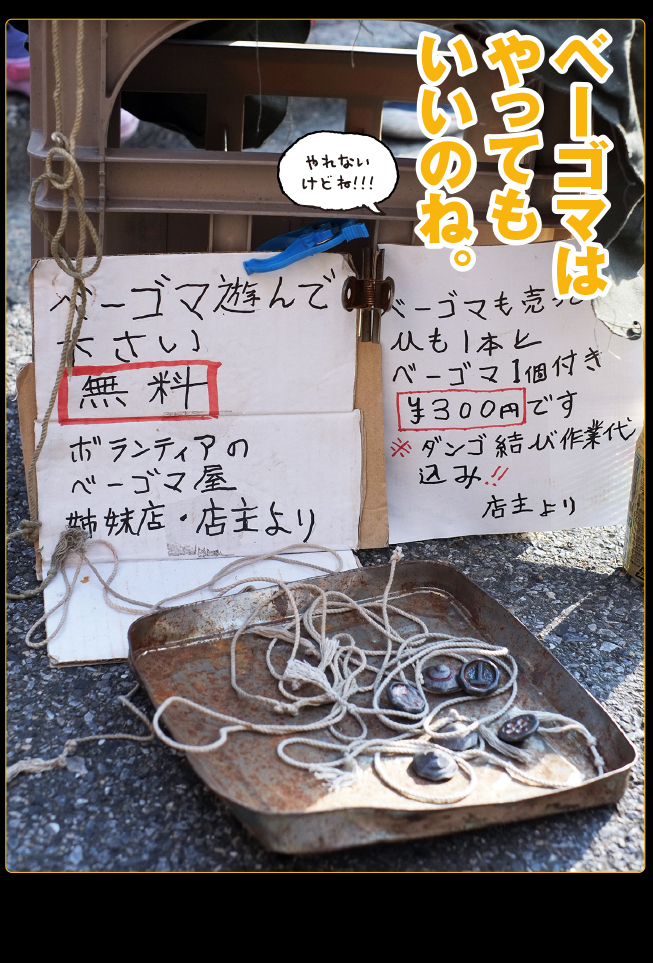 ベーゴマは
やっても
いいのね。
やれない
けどね!!!
ベーゴマ遊んで
下さい
無料
ボランティアの
ベーゴマ屋
姉妹店・店主より
ベーゴマも売っ
ひも1本と
ベーゴマ1個付き
¥300円です
※ダンゴ結び作業代
込み!!
店主より